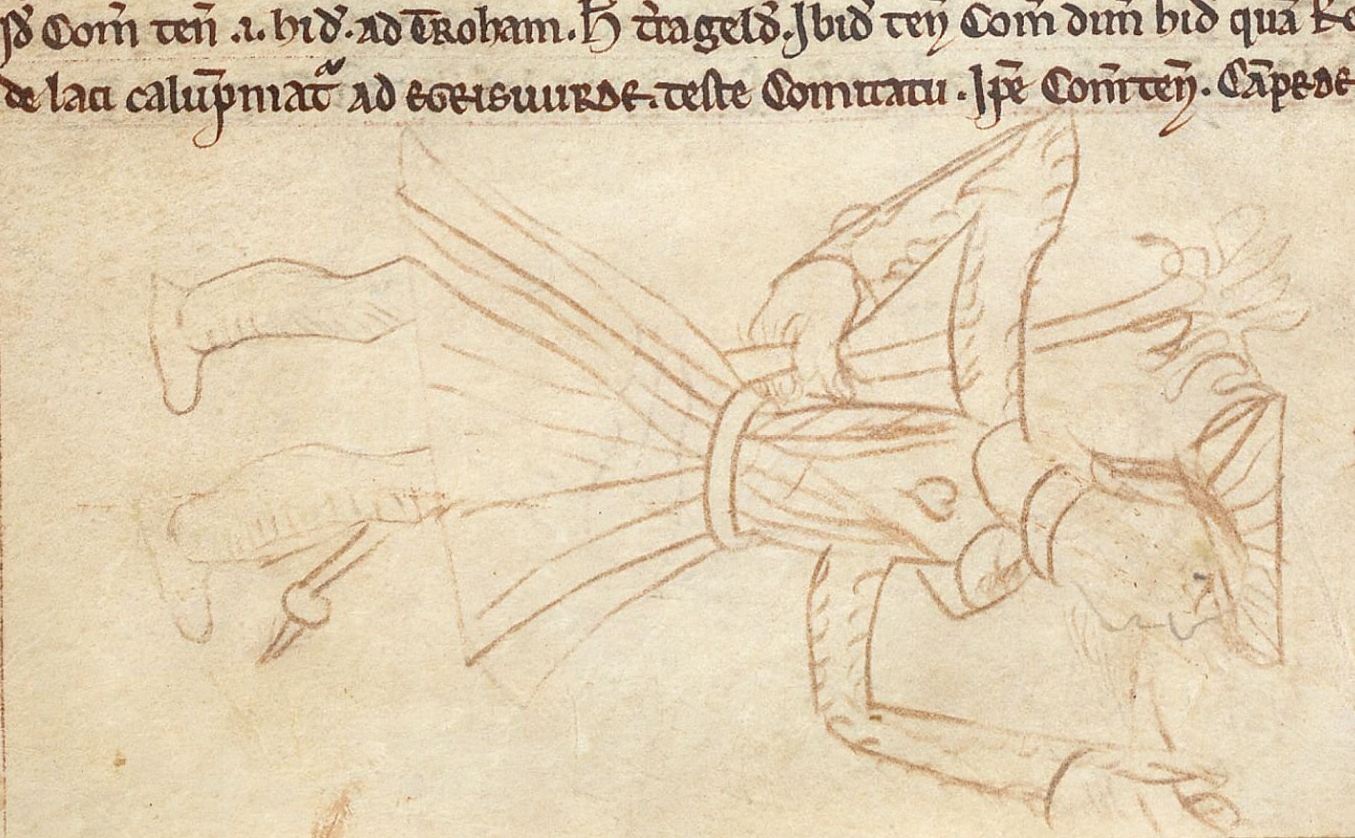 Isđ Com̄ ten̄ .i. hid̄. ad TRoham. H̄ t͛ra geld̄. Ibid̄ ten̄ Com̄ dim̄ hid̄ quā
de laci calūpniat͛ ad EGEISUURDE. teste Comitatu. Ip̄e Com̄ ten̄. CāPEDE